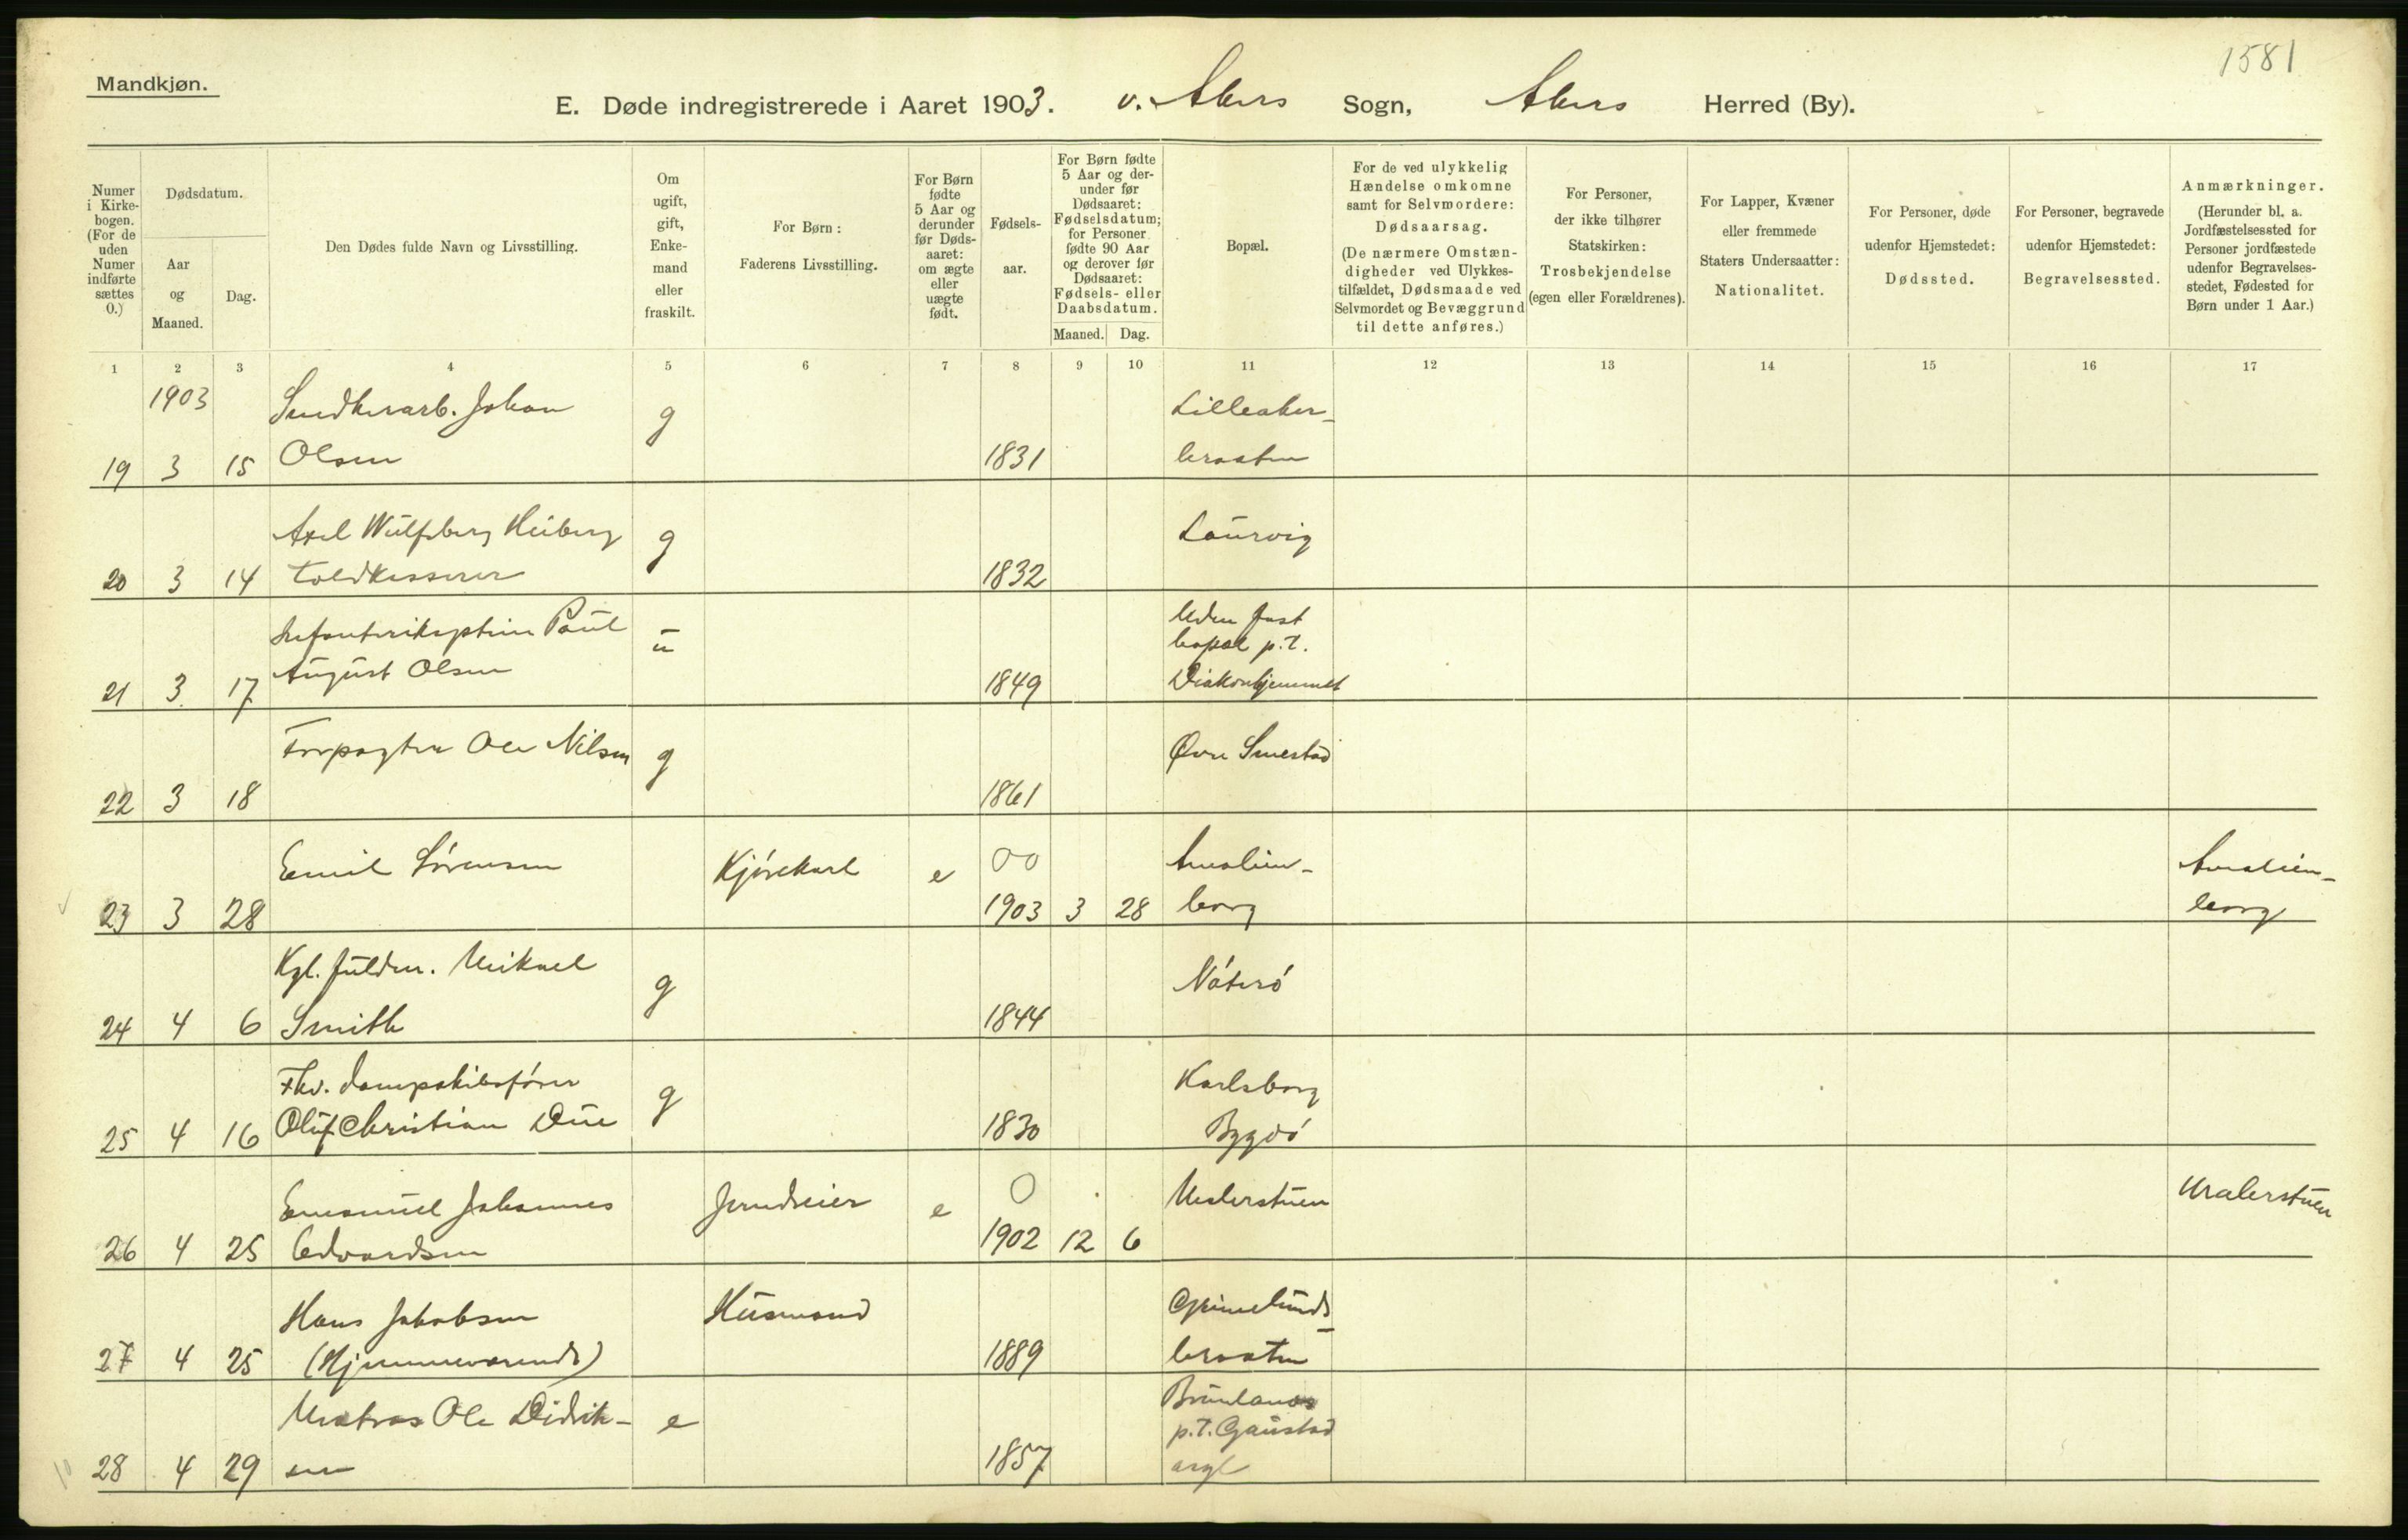 1581
Mandkjøn.
E. Døde indregistrerede i Aaret 1903. v. Akers Sogn, Akers Herred (By).
Numer i Kirkebogen. (For de uden Numer indførte sættes 0.)
Dødsdatum.
Aar og Maaned.
Dag.
Den Dødes fulde Navn og Livsstilling.
Om ugift, gift, Enkemand eller fraskilt.
For Børn: Faderens Livsstilling.
For Børn fødte 5 Aar og derunder før Dødsaaret: om ægte eller uægte født.
Fødselsaar.
For Børn fødte 5 Aar og derunder før Dødsaaret: Fødselsdatum; for Personer fødte 90 Aar og derover før Dødsaaret: Fødsels- eller Daabsdatum.
Maaned. Dag.
Bopæl.
For de ved ulykkelig Hændelse omkomne samt for Selvmordere: Dødsaarsag. (De nærmere Omstændigheder ved Ulykkestilfældet, Dødsmaade ved Selvmordet og Bevæggrund til dette anføres.)
For Personer, der ikke tilhører Statskirken: Trosbekjendelse (egen eller Forældrenes).
For Lapper, Kvæner eller fremmede Staters Undersaatter: Nationalitet.
For Personer, døde udenfor Hjemstedet: Dødssted.
For Personer, begravede udenfor Hjemstedet: Begravelsessted.
Anmærkninger. (Herunder bl. a. Jordfæstelsessted for Personer jordfæstede udenfor Begravelsesstedet, Fødested for Børn under 1 Aar.)
1 2 3 4 5 6 7 8 9 10 11 12 13 14 15 16 17
1903 Johan g Lilleaker-
19 3 15 Olsen 1831 braaten
Axel Wulfsberg Heiberg g Laurvig
20 3 14 Toldkasserer 1832
Infanterikaptein Paul u Uden fast
bopæl p.t.
21 3 17 August Olsen 1849 Diakonhjemmet
Forpagter Ole Nilsen g Øvre Smestad
22 3 18 1861
Emil Sørensen Kjørekarl e 00 Amalien- Amalien-
23 3 28 1903 3 28 borg borg
Kgl. fuldm. Mikael g Nøterø
24 4 6 Smith 1844
Fhv. dampskibsfører g Karlsborg
25 4 16 Oluf Christian Due 1830 Bygdø
Emanuel Johannes Jordeier e 0
26 4 25 Edvardsen 1902 12 6
Hans Jakobsen Husmand Grimelunds-
27 4 25 (Hjemmeværende) 1889 braaten
Matros Ole Didrik- e Brunlanes
p.t. Gaustad
28 4 29 sen 1857 asyl